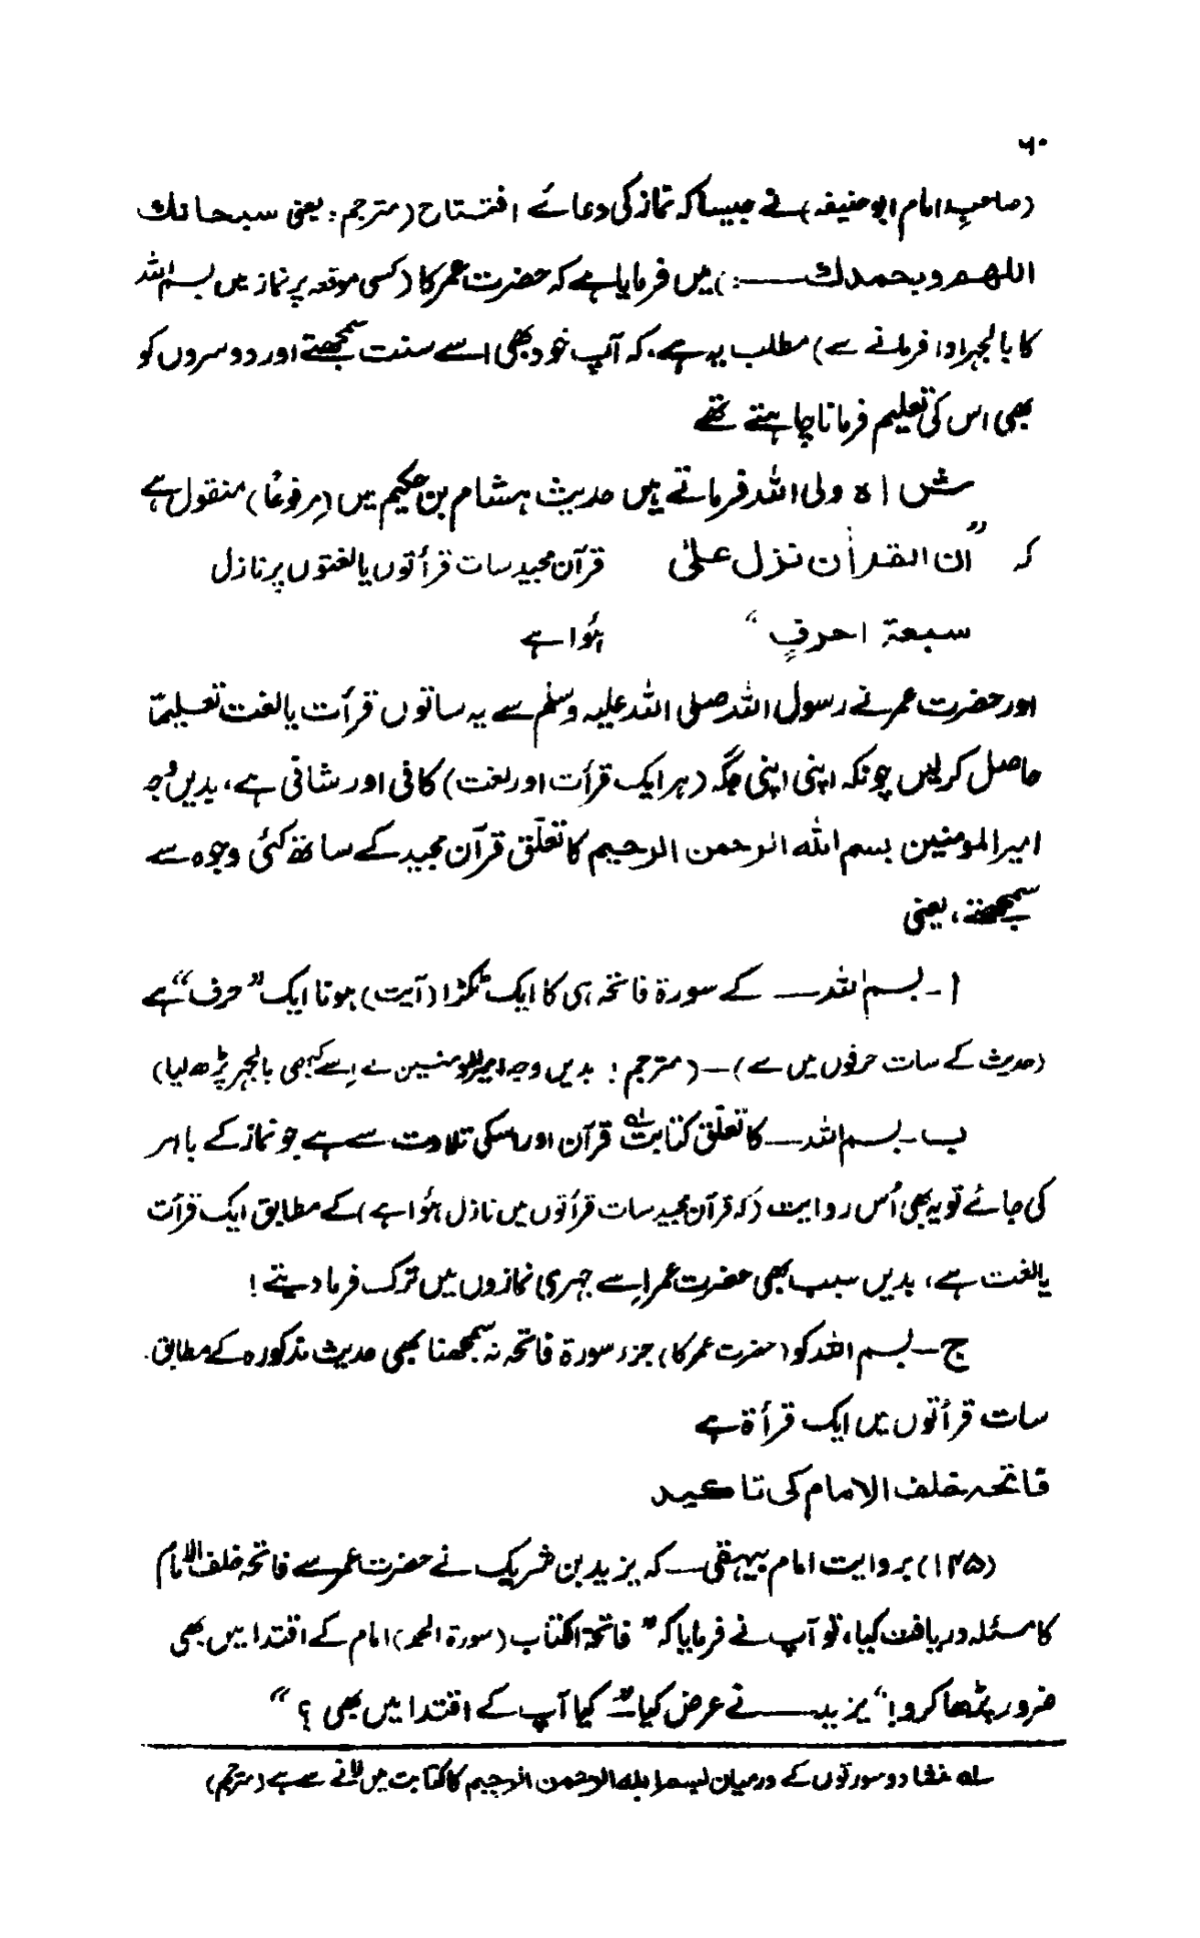 ٦٠
(صاحبِ امام ابو حنیفہ) نے جیسا کہ نماز کی دعائے افتتاح (مترجم: یعنی سبحانك
اللهم وبحمدك ــــ:) میں فرمایا ہے کہ حضرت عمر کا (کسی موقعہ پر نماز میں بسم اللہ
کا بالجہر ادا فرمانے سے) مطلب یہ ہے، کہ آپ خود بھی اسے سنت سمجھتے اور دوسروں کو
بھی اس کی تعلیم فرمانا چاہتے تھے
شاہ ولی اللہ فرماتے ہیں حدیث ہشام بن حکیم میں (مرفوعًا) منقول ہے
کہ "ان القرآن نزل علیٰ قرآن مجید سات قرأتوں یا لغتوں پر نازل
سبعۃ احرفٍ" ہُوا ہے
اور حضرت عمر نے رسول اللہ صلی اللہ علیہ وسلم سے یہ ساتوں قرأت یا لغت تعلیمًا
حاصل کر لیں چونکہ اپنی اپنی جگہ (ہر ایک قرأت اور لغت) کافی اور شافی ہے، بدیں وجہ
امیر المومنین بسم اللہ الرحمن الرحیم کا تعلّق قرآن مجید کے ساتھ کئی وجوہ سے
سمجھتے، یعنی
ا ـ بسم اللہ ــــ کے سورۃ فاتحہ ہی کا ایک ٹکڑا (آیت) ہونا ایک "حرف" ہے
(حدیث کے سات حرفوں میں سے) ــ (مترجم: بدیں وجہ امیر المومنین نے اِسے کبھی بالجہر پڑھ لیا)
ب ـ بسم اللہ ــــ کا تعلّق کتابت؂۱ قرآن اور اسکی تلاوت سے ہے جو نماز کے باہر
کی جائے تو یہ بھی اُس روایت (کہ قرآن مجید سات قرأتوں میں نازل ہُوا ہے) کے مطابق ایک قرأت
یا لغت ہے، بدیں سبب بھی حضرت عمر اسے جہری نمازوں میں ترک فرما دیتے!
ج ــ بسم اللہ کو (حضرت عمر کا) جزءِ سورۃ فاتحہ نہ سمجھنا بھی حدیث مذکورہ کے مطابق
سات قرأتوں میں ایک قرأۃ ہے
فاتحہ خلف الامام کی تاکید
(۱۴۵) بروایت امام بیہقی ــ کہ یزید بن شریک نے حضرت عمر سے فاتحہ خلف الامام
کا مسئلہ دریافت کیا، تو آپ نے فرمایا کہ "فاتحۃ الکتاب (سورۃ الحمد) امام کے اقتدا میں بھی
ضرور پڑھا کرو!" یزید ــــ نے عرض کیا ــ "کیا آپ کے اقتدا میں بھی ؟"
؂۱ منشا دو سورتوں کے درمیان بسم اللہ الرحمن الرحیم کا کتابت میں لانے سے ہے (مترجم)